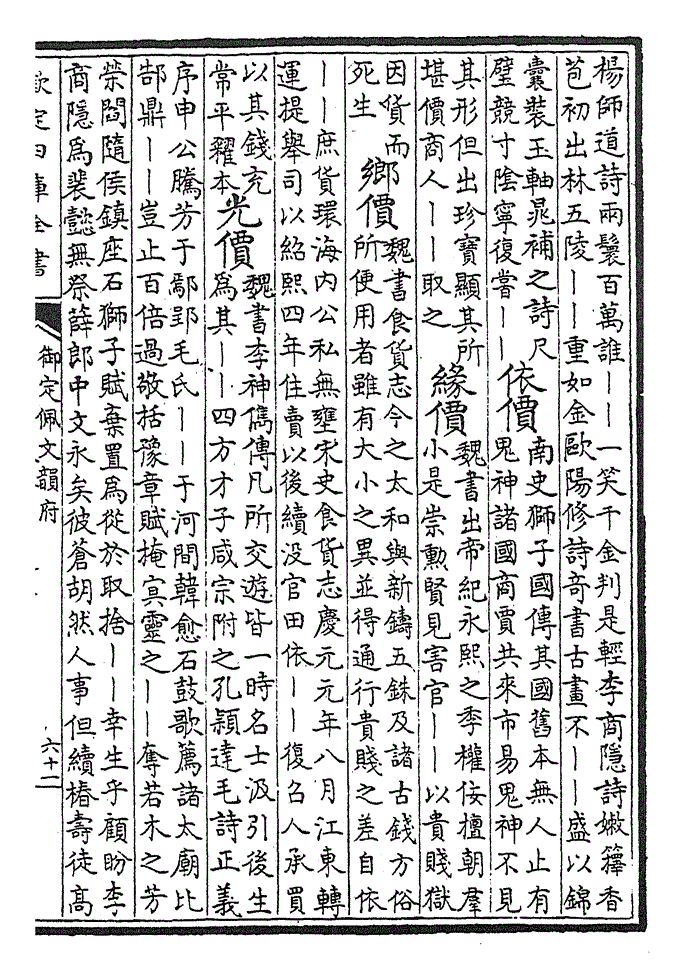 楊師道詩兩鬟百萬誰丨丨一笑千金判是輕李商隱詩嫩籜香
苞初出林五陵丨丨重如金歐陽修詩奇書古畫不丨丨盛以錦
囊裝玉軸晁補之詩尺
璧競寸陰寧復嘗丨丨
依價
南史獅子國傳其國舊本無人止有
鬼神諸國商賈共來市易鬼神不見
其形但出珍寶顯其所
堪價商人丨丨取之
緣價
魏書出帝紀永熙之季權佞擅朝羣
小是崇勲賢見害官丨丨以貴賤獄
因貨而
死生
鄉價
魏書食貨志今之太和與新鑄五銖及諸古錢方俗
所便用者雖有大小之異並得通行貴賤之差自依
丨丨庶貨環海内公私無壅宋史食貨志慶元元年八月江東轉
運提舉司以紹熙四年住賣以後續没官田依丨丨復召人承買
以其錢充
常平糴本
光價
魏書李神儁傳凡所交遊皆一時名士汲引後生
為其丨丨四方才子咸宗附之孔穎達毛詩正義
序申公騰芳于鄢郢毛氏丨丨于河間韓愈石鼓歌薦諸太廟比
郜鼎丨丨豈止百倍過敬括豫章賦掩㝠靈之丨丨奪若木之芳
榮閻隨侯鎮座石獅子賦棄置為從於取捨丨丨幸生乎顧盼李
商隱為裴懿無祭薛郎中文永矣彼蒼胡然人事但續椿壽徒高
欽定四庫全書
御定佩文韻府
六十二